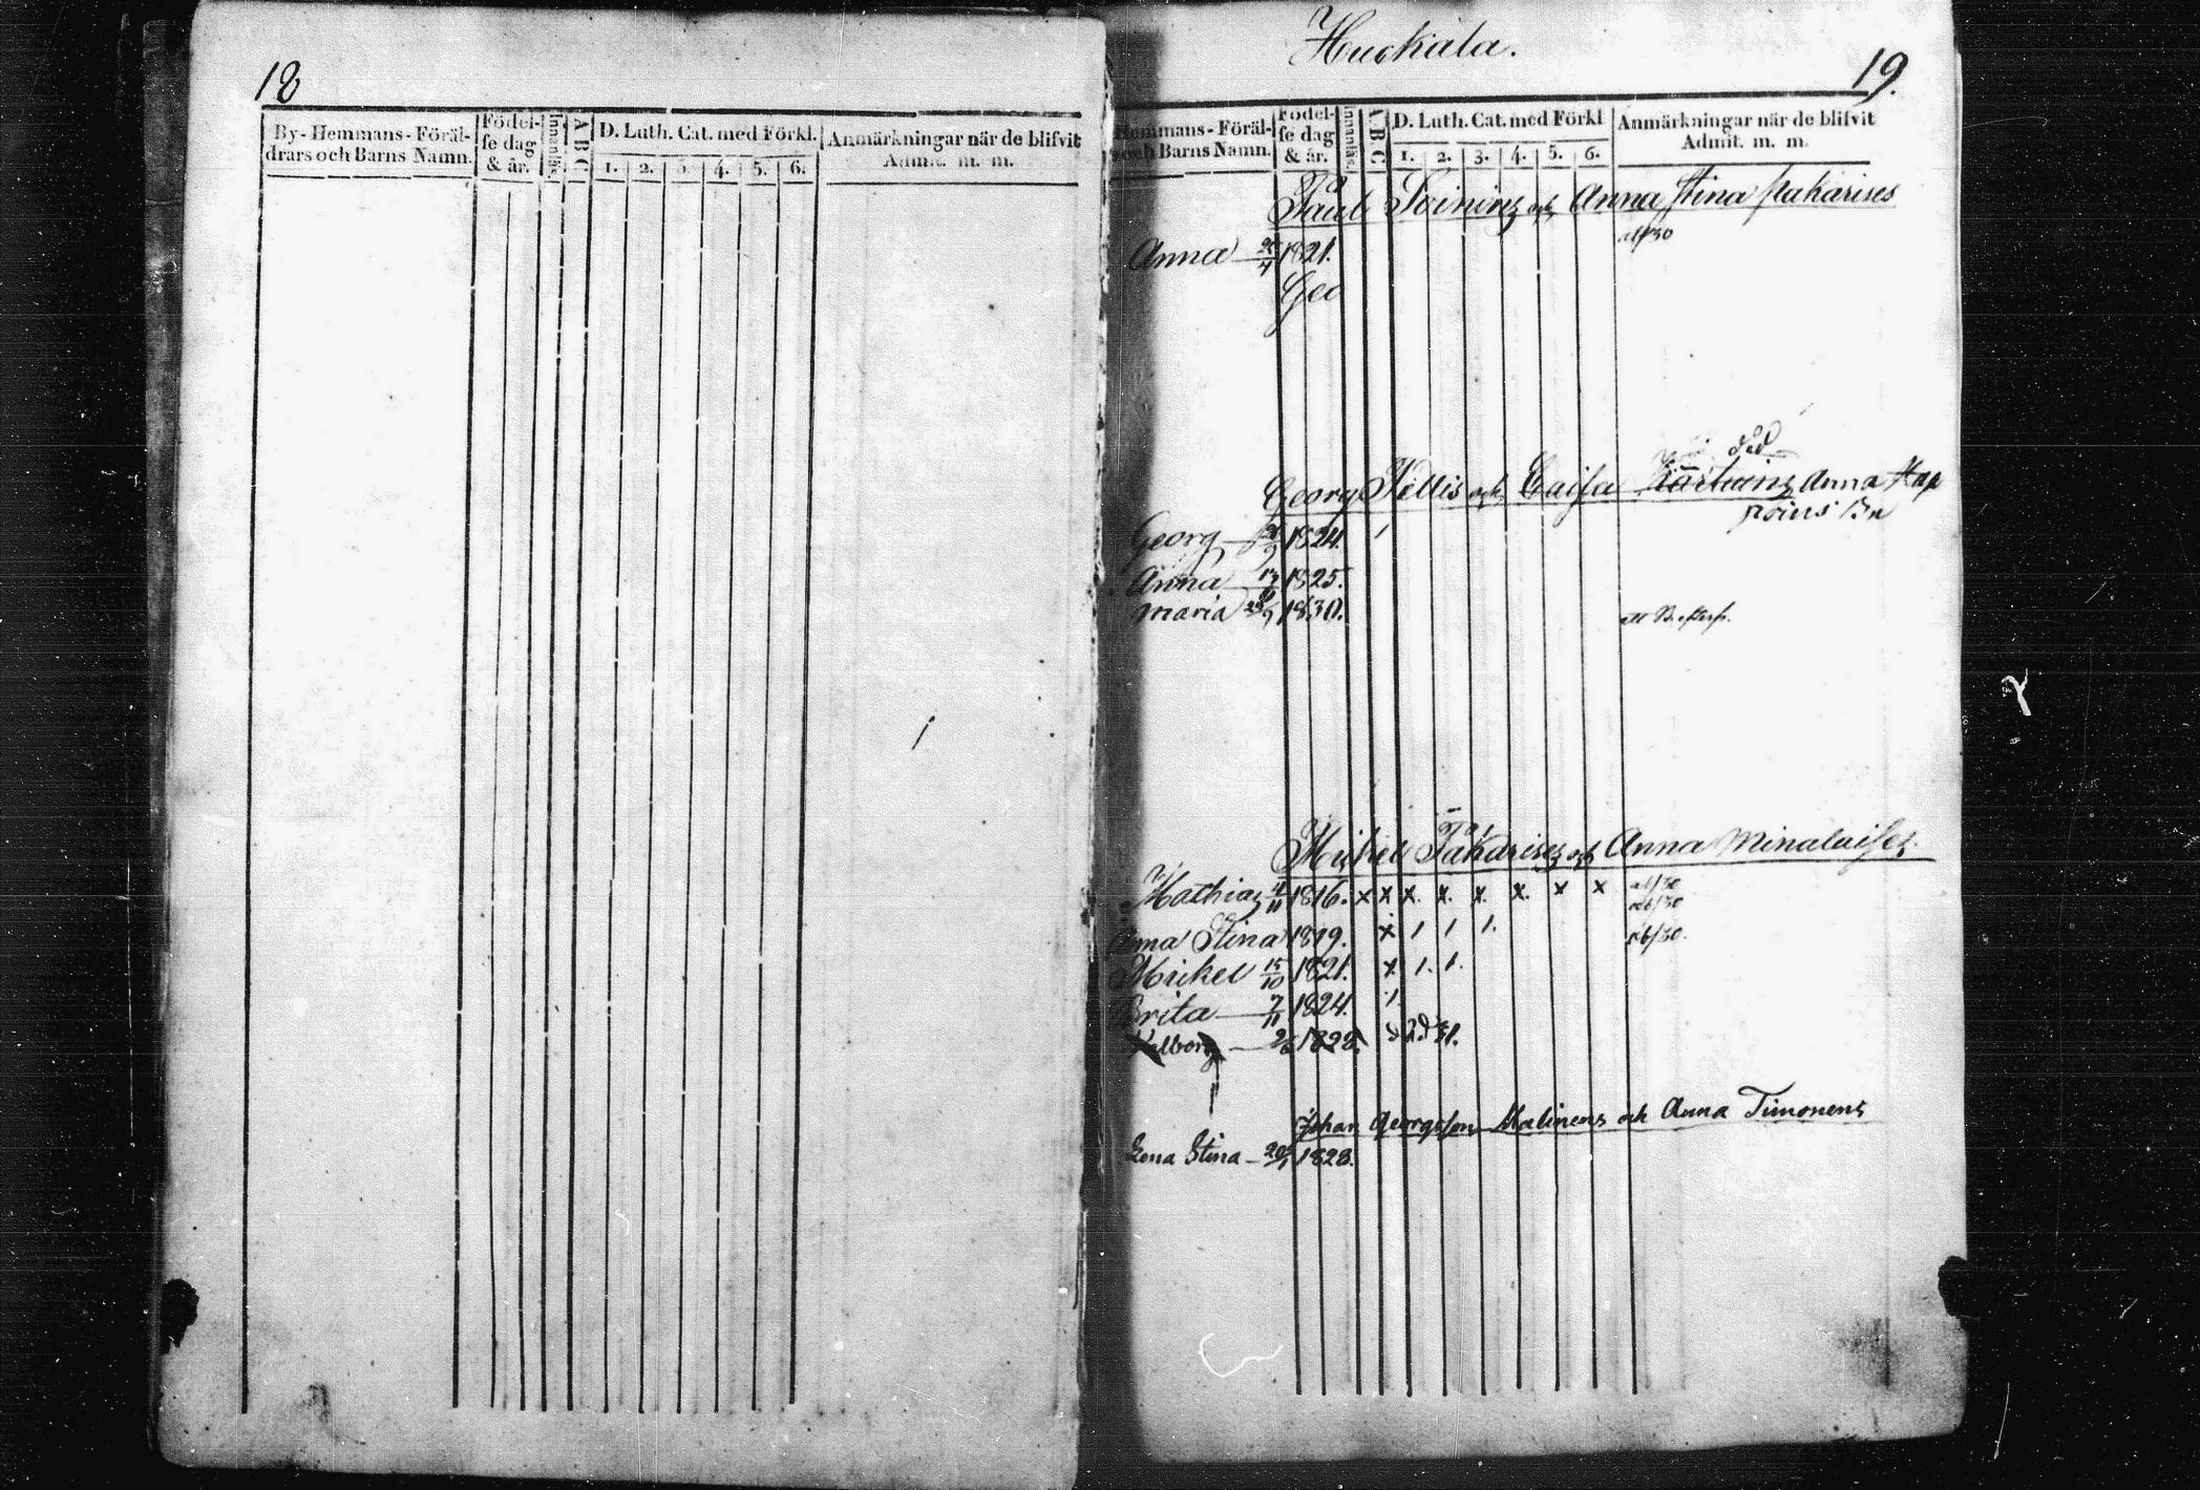 18
By-Hemmans-Föräl-
drars och Barns Namn.
Födel-
se dag
& år.
Innanläs.
A B C
D. Luth. Cat. med Förkl.
1. 2. 3. 4. 5. 6.
Anmärkningar när de blifvit
Admit. m. m.
Huckala.
19.
Hemmans-Föräl-
och Barns Namn.
Födel-
se dag
& år.
Innanläs.
A B C
D. Luth. Cat. med Förkl
1. 2. 3. 4. 5. 6.
Anmärkningar när de blifvit
Admit. m. m.
Paul Toining och Anna Stina Pakarises
Anna 1821.
Geo
Georg Nellis och Caisa Anna
Georg 1824. 1
Anna 1825.
Maria 1830.
Mickel Pakarises och Anna Minalaises
Mathias 4/11 1816. x x x. x. x. x. x x
Anna Stina 1819. x 1 1 1.
Mickel 15/10 1821. x 1. 1.
Brita 7/11 1824. 1.
Valborg 1828.
Johan Georgsson Malinens och Anna Timonens
Lena Stina 20/1 1828.